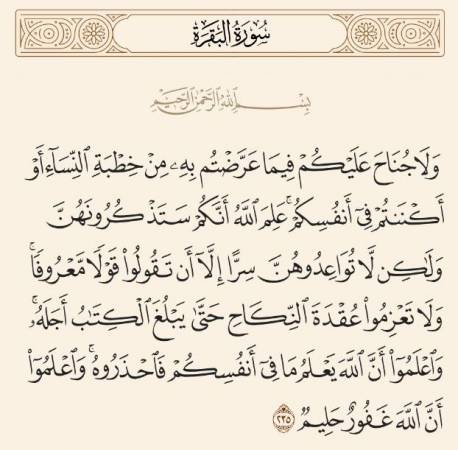 سُورَةُ البَقَرَةِ
بِسْمِ اللَّهِ الرَّحْمَٰنِ الرَّحِيمِ
وَلَا جُنَاحَ عَلَيْكُمْ فِيمَا عَرَّضْتُم بِهِۦ مِنْ خِطْبَةِ ٱلنِّسَآءِ أَوْ
أَكْنَنتُمْ فِىٓ أَنفُسِكُمْ ۚ عَلِمَ ٱللَّهُ أَنَّكُمْ سَتَذْكُرُونَهُنَّ
وَلَٰكِن لَّا تُوَاعِدُوهُنَّ سِرًّا إِلَّآ أَن تَقُولُوا۟ قَوْلًا مَّعْرُوفًا ۚ
وَلَا تَعْزِمُوا۟ عُقْدَةَ ٱلنِّكَاحِ حَتَّىٰ يَبْلُغَ ٱلْكِتَٰبُ أَجَلَهُۥ ۚ
وَٱعْلَمُوٓا۟ أَنَّ ٱللَّهَ يَعْلَمُ مَا فِىٓ أَنفُسِكُمْ فَٱحْذَرُوهُ ۚ وَٱعْلَمُوٓا۟
أَنَّ ٱللَّهَ غَفُورٌ حَلِيمٌ ٢٣٥